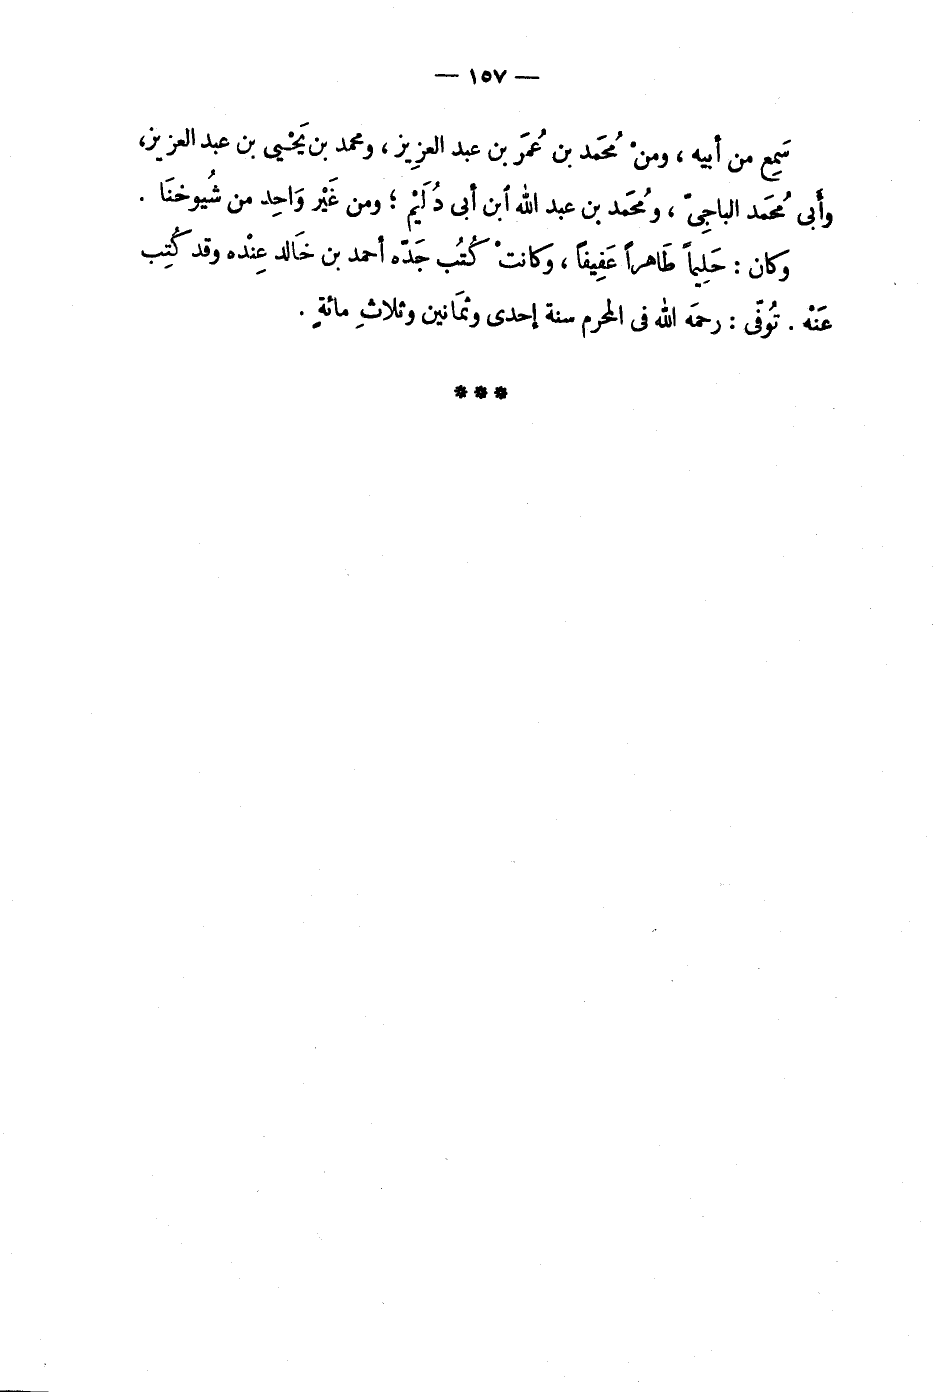 — ١٥٧ —
سَمِع من أبيه ، ومنْ مُحَمَد بن عُمَر بن عبد العزِيز ، ومحمد بن يَحْيى بن عبد العزيز،
وأَبى مُحمَد الباجِىّ ، ومُحَمد بن عبد الله ٱبن أبى دُلَيْم ؛ ومن غَيْر وَاحِد من شُيوخنَا .
وكان : حَلِيماً طَاهراً عَفِيفاً ، وكانتْ كُتُب جَدّه أحمد بن خَالد عِنْده وقد كُتِب
عَنْه . تُوفّى : رحمَه الله فى المحرم سنة إحدى وثمَانين وثلاثِ مائةٍ .
***